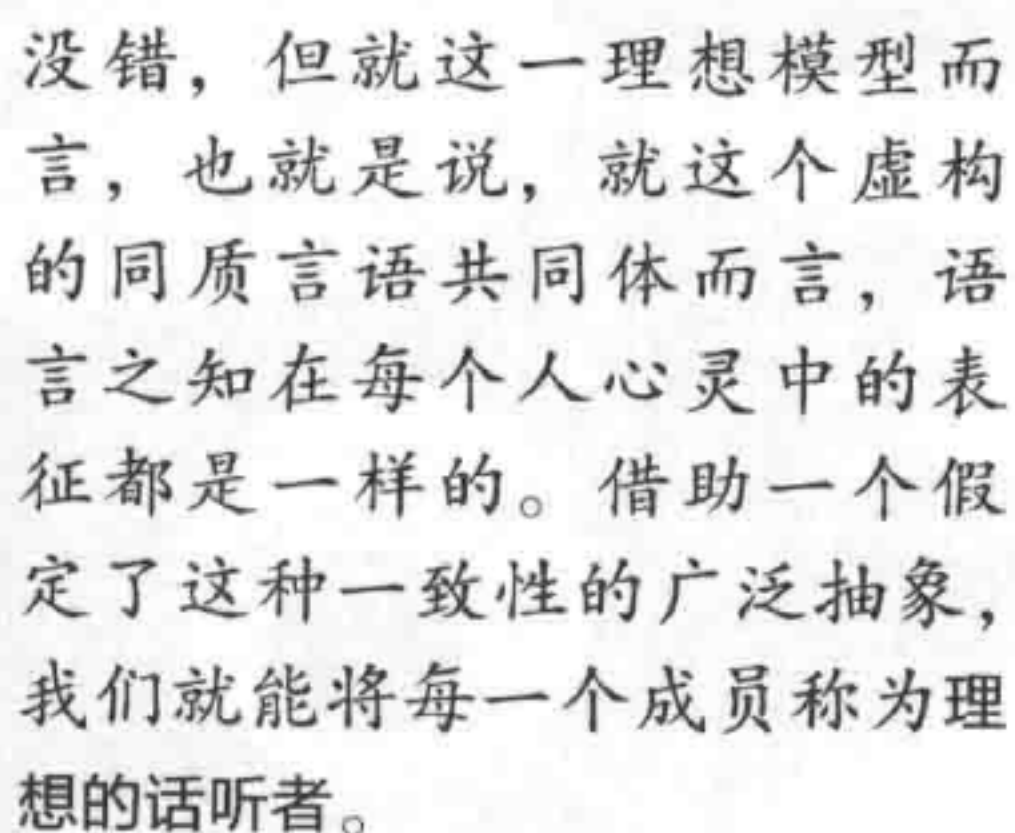 没错，但就这一理想模型而
言，也就是说，就这个虚构
的同质言语共同体而言，语
言之知在每个人心灵中的表
征都是一样的。借助一个假
定了这种一致性的广泛抽象，
我们就能将每一个成员称为理
想的话听者。